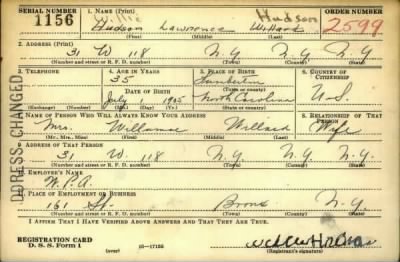 SERIAL NUMBER 1. NAME (Print) ORDER NUMBER
1156 Hudson Lawrence Willard Hudson 2599
(First) (Middle) (Last)
2. ADDRESS (Print)
31 W 118 N.Y N.Y N.Y
(Number and street or R. F. D. number) (Town) (County) (State)
3. TELEPHONE 4. AGE IN YEARS 5. PLACE OF BIRTH 6. COUNTRY OF CITIZENSHIP
35 Lumberton
DATE OF BIRTH (Town or county)
July 1905 North Carolina U-S
(Exchange) (Number) (Mo.) (Day) (Yr.) (State or country)
7. NAME OF PERSON WHO WILL ALWAYS KNOW YOUR ADDRESS 8. RELATIONSHIP OF THAT PERSON
Mrs. Willamae Willard Wife
(Mr., Mrs., Miss) (First) (Middle) (Last)
9. ADDRESS OF THAT PERSON
31 W. 118 N.Y N.Y N.Y
(Number and street or R. F. D. number) (Town) (County) (State)
10. EMPLOYER'S NAME
W.P.A.
11. PLACE OF EMPLOYMENT OR BUSINESS
161 St. Bronx N.Y.
(Number and street or R. F. D. number) (Town) (County) (State)
I AFFIRM THAT I HAVE VERIFIED ABOVE ANSWERS AND THAT THEY ARE TRUE.
REGISTRATION CARD
D. S. S. Form 1 (over) 16-17105
(Registrant's signature)
DDRESS CHANGED